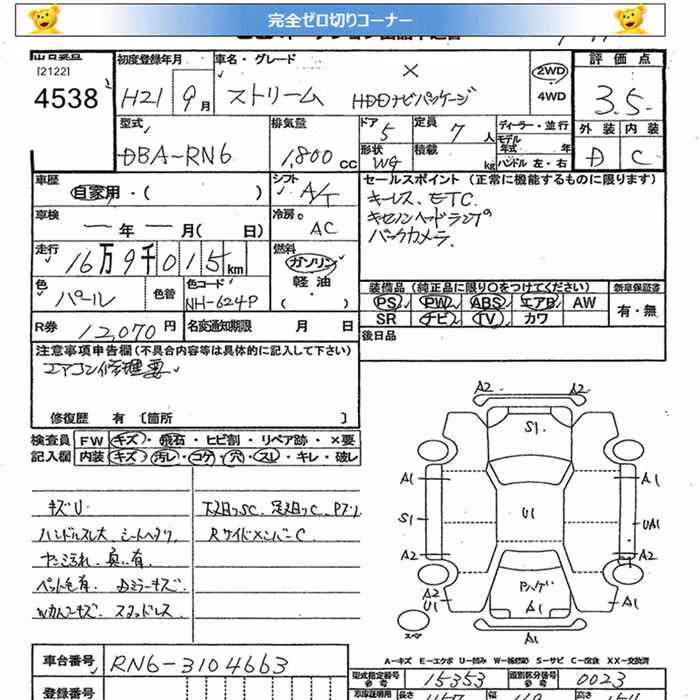 完全ゼロ切りコーナー
[2122]
4538
初度登録年月
H21 9月
車名・グレード
ストリーム × HDDナビパッケージ
2WD
4WD
評価点
3.5
外装 内装
D C
型式
DBA-RN6
排気量
1,800cc
ドア 5
形状 WG
定員 7人
積載 kg
ディーラー・並行
モデル年式 年
ハンドル 左・右
車歴
自家用・( )
シフト A/T
車検
ー年ー月(ー日)
冷房 AC
走行
16万9千015km
燃料
ガソリン
軽油
( )
色
パール
色替
色コード
NH-624P
R券 12,070円
名変通知期限 月 日
セールスポイント (正常に機能するものに限ります)
キーレス、ETC
キセノンヘッドランプ
バックカメラ
装備品 (純正品に限り○をつけてください)
PS PW ABS エアB AW
SR ナビ TV カワ
新車保証書
有・無
後日品
注意事項申告欄 (不具合内容等は具体的に記入して下さい)
エアコン修理要
修復歴 有 〔箇所 〕
検査員記入欄
FW キズ・飛石・ヒビ割・リペア跡・×要
内装 キズ・汚レ・コゲ・穴・スレ・キレ・破レ
キズU
ハンドルスレ大 シートヘタリ
ペット毛有 Dミラーキズ
スタッドレス
下廻りSC 足廻りC
RサイドメンバーC
A2 A2
S1
A1 A1
S1 U1 UA1
A2 A2
A2
U1
A1
A1
A1
スペア
A-キズ E-エクボ U-凹み W-補修跡 S-サビ C-腐食 XX-交換済
車台番号 RN6-3104663
登録番号
型式指定番号 15353
類別区分番号 0023